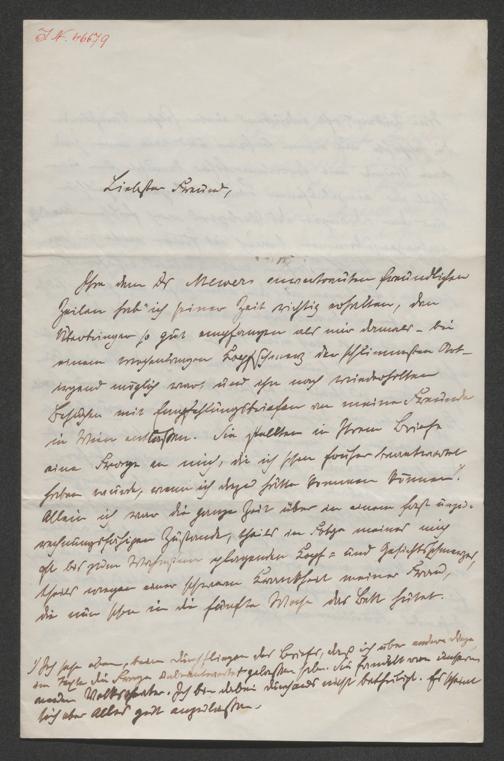 J. N. 46679
Liebster Freund,
Ihre dem Dr Mewers anvertrauten freundlichen
Zeilen hab' ich seiner Zeit richtig erhalten, den
Überbringer so gut empfangen als mir damals – bei
einem Kopfschmerz der schlimmsten Art –
irgend möglich war und ihn nach wiederholten
Besuchen mit Empfehlungsbriefen an meine Freunde
in Wien entlassen. Sie stellten in Ihrem Briefe
eine Frage an mich, die ich schon früher beantwortet
haben würde, wenn ich dazu hätte kommen können.
Allein ich war die ganze Zeit über in einem fast
Zustande, theils in Folge meiner mich
oft bis zum Wahnsinn plagenden Kopf- und Gesichtsschmerzen,
theils wegen einer schweren Krankheit meiner Frau,
die nun schon in die fünfte Woche das Bett hütet.
1) Ich sehe eben, beim Durchfliegen des Briefs, daß ich über andere Dinge
die Frage unbeantwortet gelassen habe. Sie handelt von unserem
neuen Volkstheater. Ich bin dabei durchaus nicht betheiligt. Es scheint
sich aber Alles gut anzulassen.